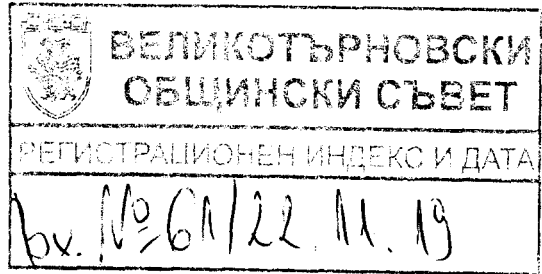 ВЕЛИКОТЪРНОВСКИ
ОБЩИНСКИ СЪВЕТ
РЕГИСТРАЦИОНЕН ИНДЕКС И ДАТА
Вх. № 61/22.11.19